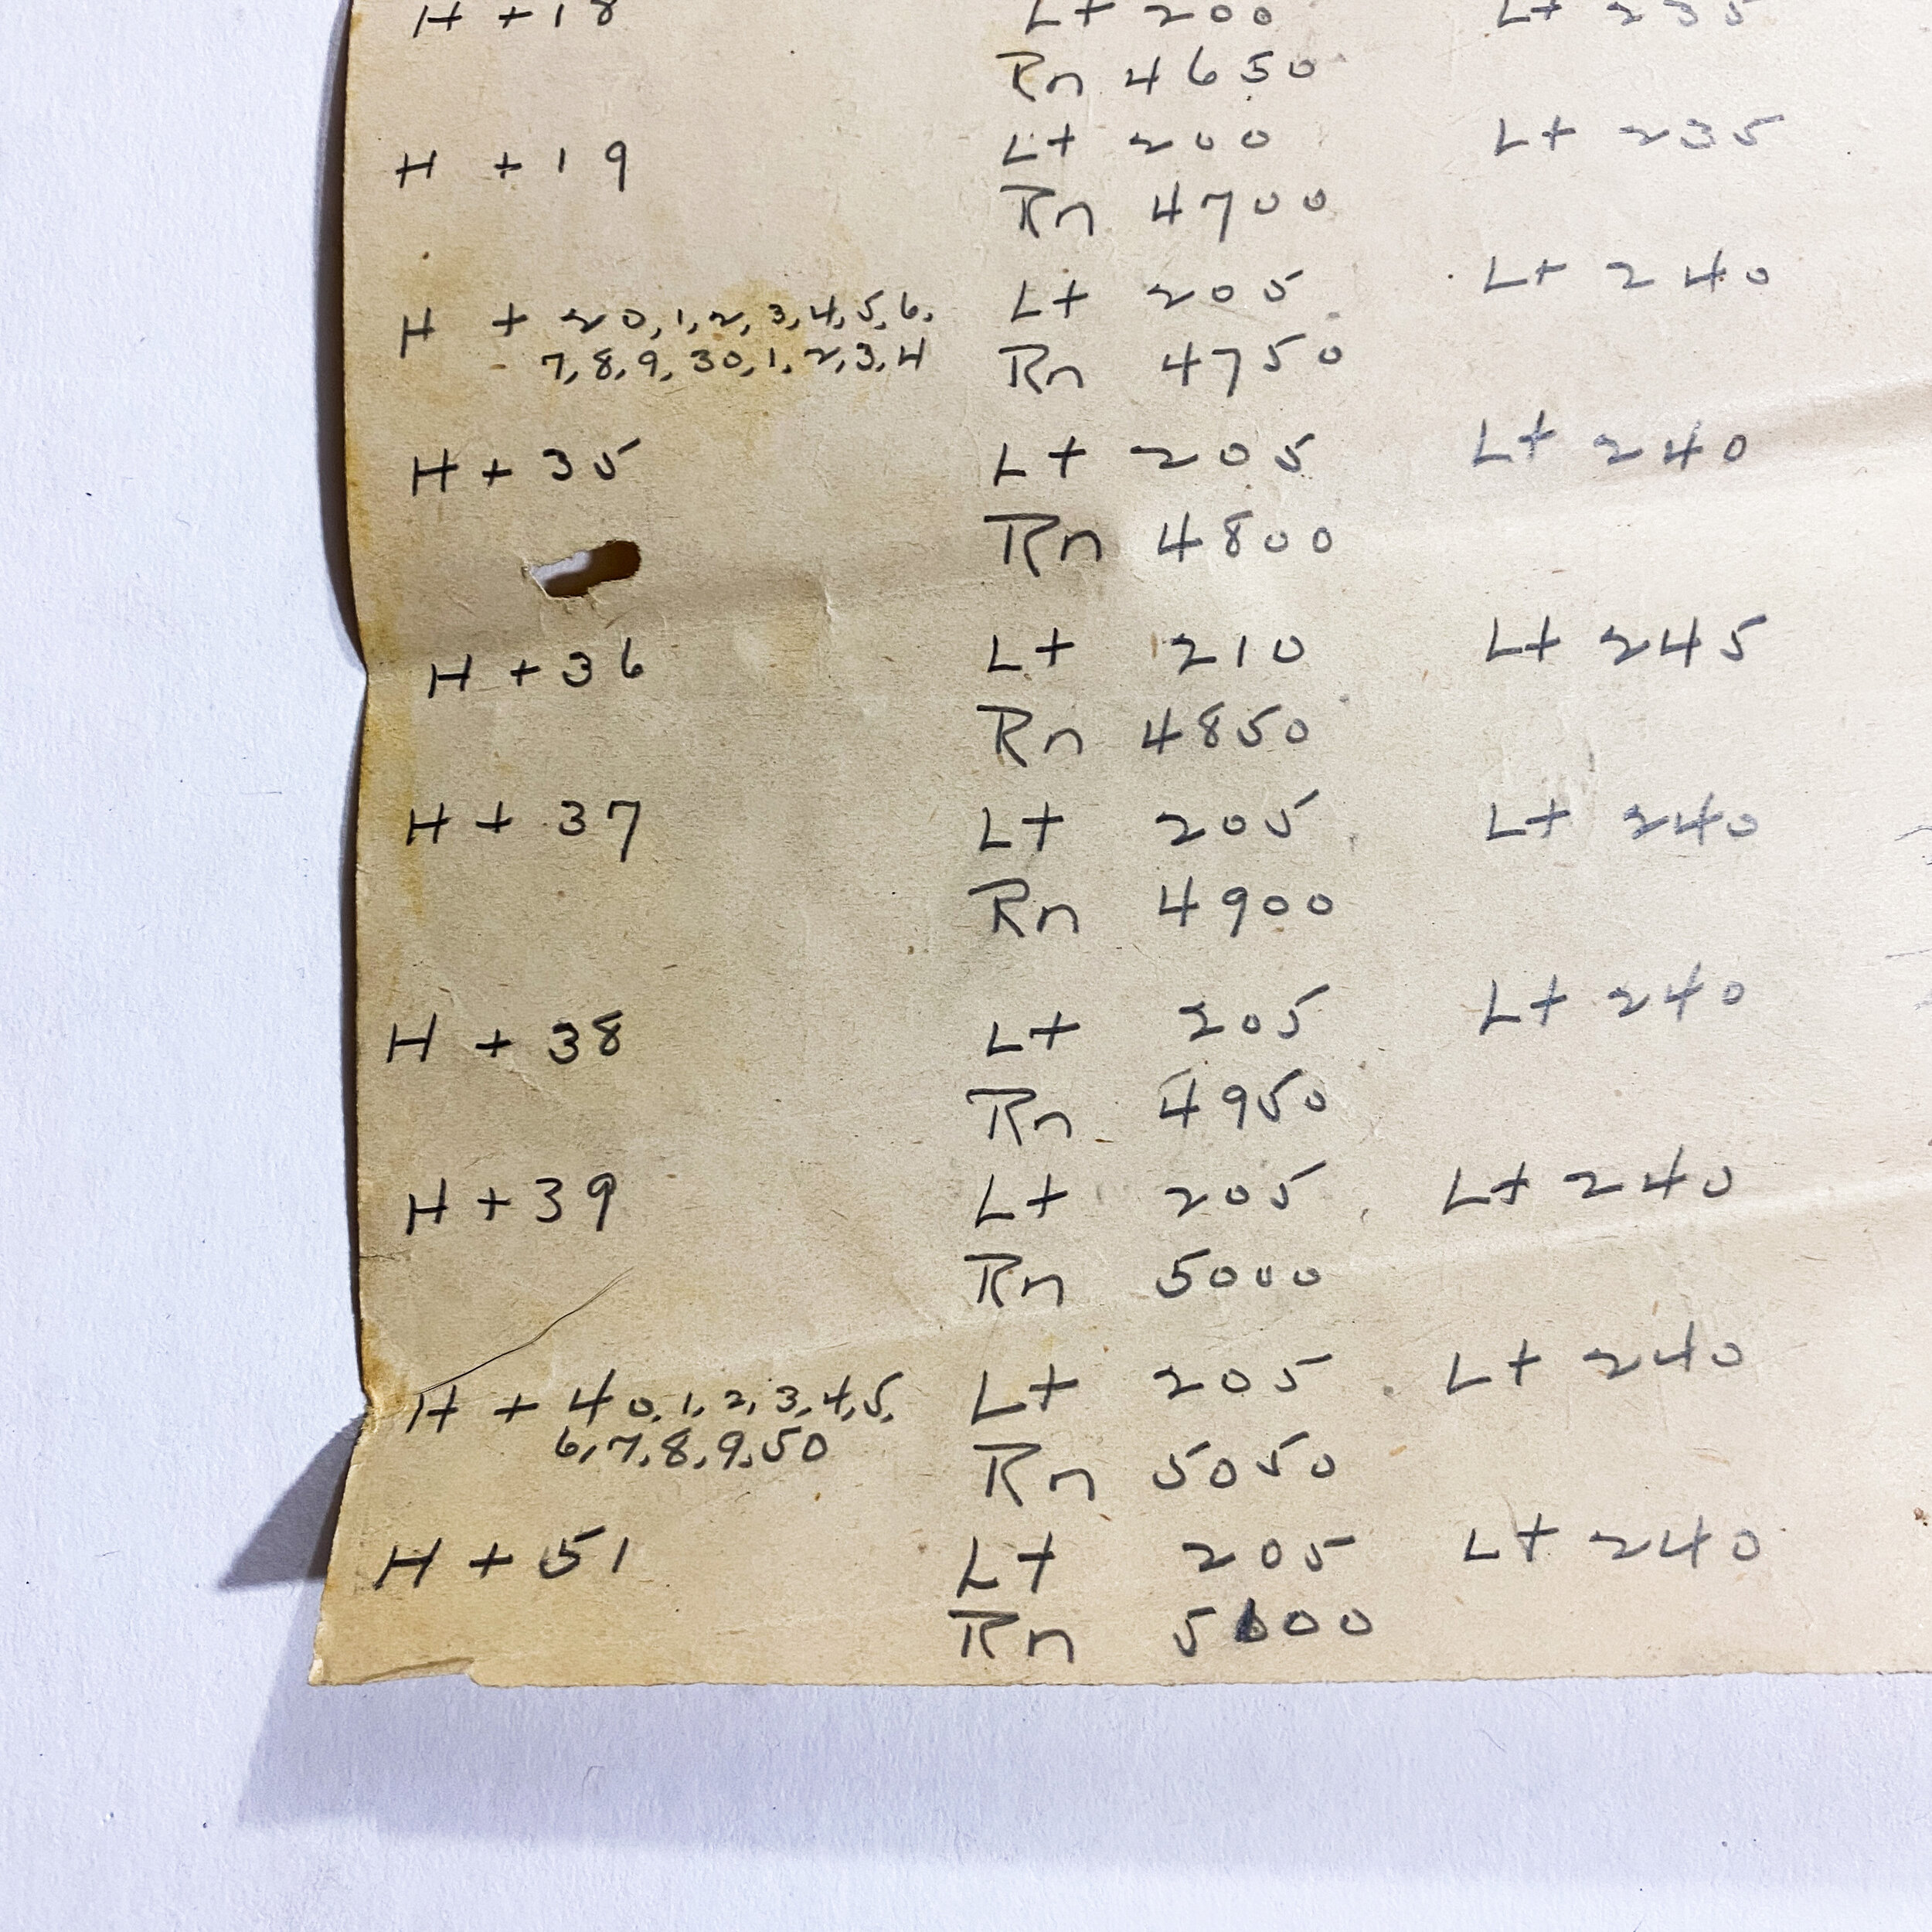 H + 18 Lt 200 Lt 235
Rn 4650
H + 19 Lt 200 Lt 235
Rn 4700
H + 20, 1, 2, 3, 4, 5, 6, Lt 205 Lt 240
7, 8, 9, 30, 1, 2, 3, 4 Rn 4750
H + 35 Lt 205 Lt 240
Rn 4800
H + 36 Lt 210 Lt 245
Rn 4850
H + 37 Lt 205 Lt 240
Rn 4900
H + 38 Lt 205 Lt 240
Rn 4950
H + 39 Lt 205 Lt 240
Rn 5000
H + 40, 1, 2, 3, 4, 5, Lt 205 Lt 240
6, 7, 8, 9, 50 Rn 5050
H + 51 Lt 205 Lt 240
Rn 5100